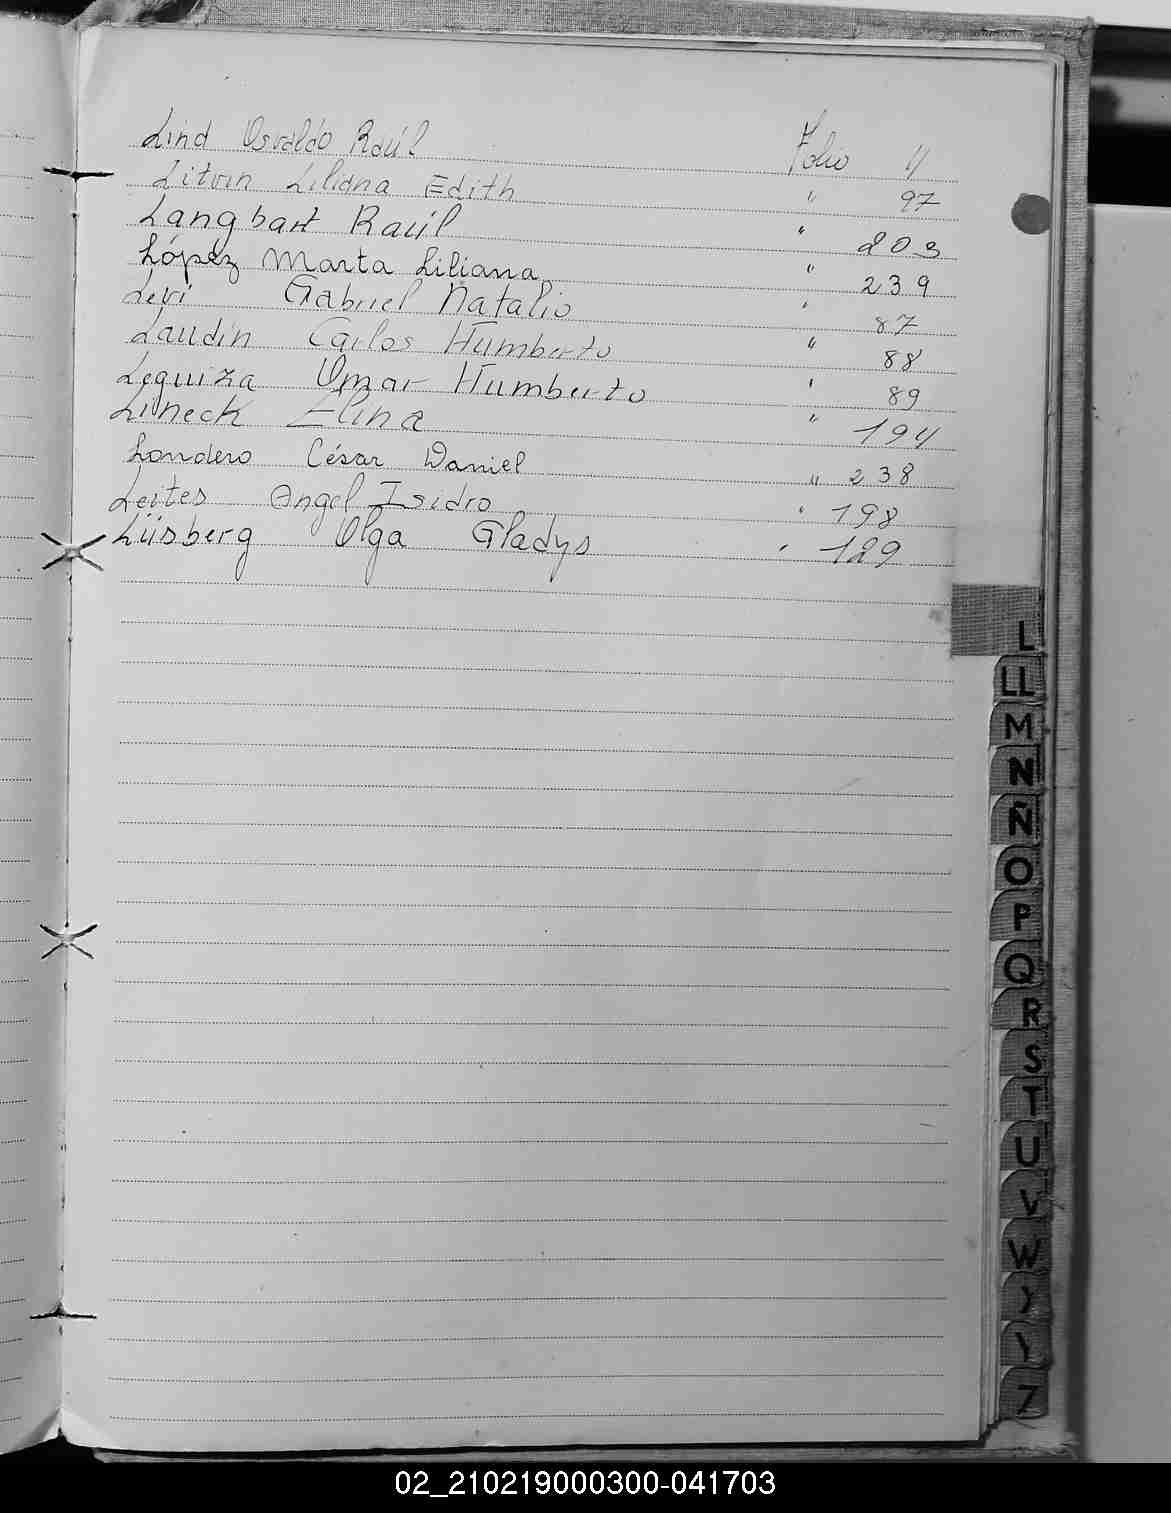 Lind Osvaldo Raúl Folio 11
Litvin Liliana Edith " 97
Langbart Raúl " 203
López Marta Liliana " 239
Levi Gabriel Natalio " 87
Laudin Carlos Humberto " 88
Leguiza Omar Humberto " 89
Lineck Elina " 194
Londero César Daniel " 238
Leites Angel Isidro " 198
Liisberg Olga Gladys " 129
L
LL
M
N
Ñ
O
P
Q
R
S
T
U
V
W
Z
02_210219000300-041703